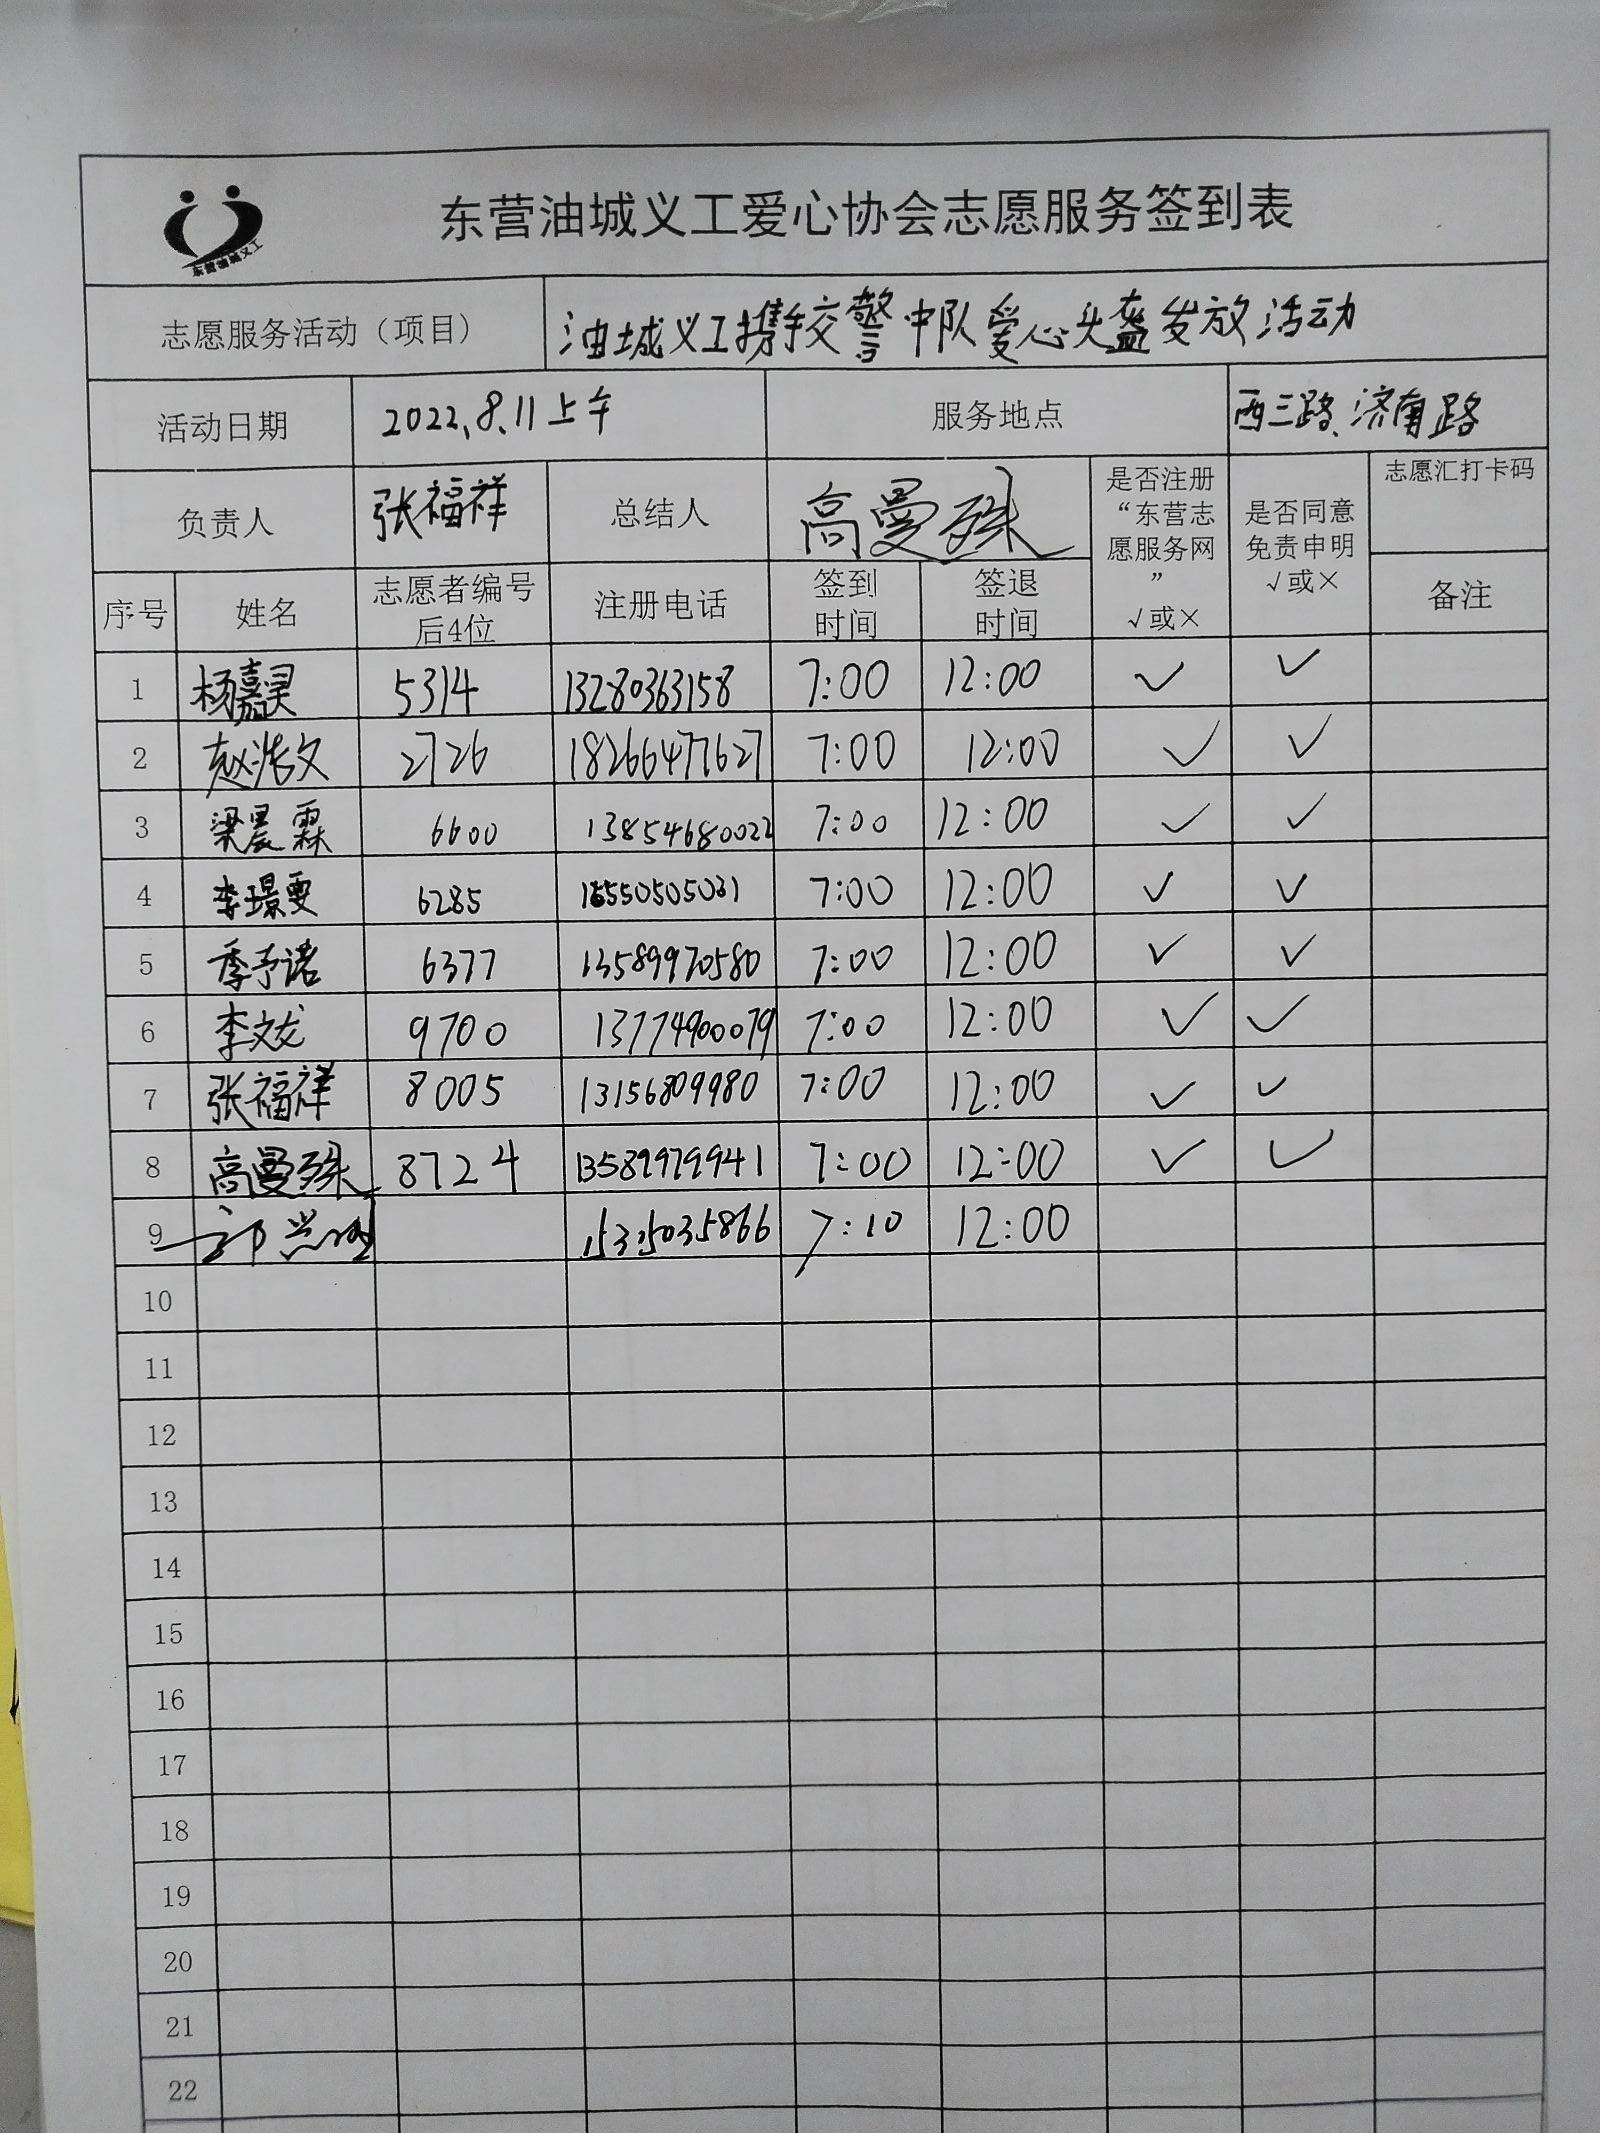 东营油城义工
东营油城义工爱心协会志愿服务签到表
志愿服务活动（项目） 油城义工携手交警中队爱心头盔发放活动
活动日期 2022.8.11上午 服务地点 西三路、济南路
负责人 张福祥 总结人 高曼殊 是否注册“东营志愿服务网” √或× 是否同意免责申明 √或× 志愿汇打卡码
序号 姓名 志愿者编号后4位 注册电话 签到时间 签退时间 备注
1 杨嘉昊 5314 13280363158 7:00 12:00 ✓ ✓
2 赵浩文 2726 18266477627 7:00 12:00 ✓ ✓
3 梁晨霖 6600 13854680022 7:00 12:00 ✓ ✓
4 李璟雯 6285 7:00 12:00 ✓ ✓
5 季予诺 6377 13589970580 7:00 12:00 ✓ ✓
6 李文龙 9700 13774900079 7:00 12:00 ✓ ✓
7 张福祥 8005 13156809980 7:00 12:00 ✓ ✓
8 高曼殊 8724 13589979941 7:00 12:00 ✓ ✓
9 15315035866 7:10 12:00
10
11
12
13
14
15
16
17
18
19
20
21
22